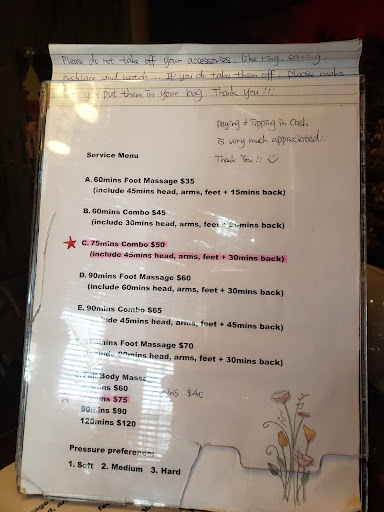 Please do not take off your accessories, like ring, earring,
necklace and watch... If you do take them off, please make
you put them in your bag. Thank you!!!
Paying & Tipping in Cash
is very much appreciated!
Thank You!!
Service Menu
A. 60mins Foot Massage $35
(include 45mins head, arms, feet + 15mins back)
B. 60mins Combo $45
(include 30mins head, arms, feet + mins back)
C. 75mins Combo $50
(include 45mins head, arms, feet + 30mins back)
D. 90mins Foot Massage $60
(include 60mins head, arms, feet + 30mins back)
E. 90mins Combo $65
45mins head, arms, feet + 45mins back)
Foot Massage $70
head, arms, feet + 30mins back)
Body
$60
$75
$40
90mins $90
120mins $120
Pressure preference:
1. Soft 2. Medium 3. Hard